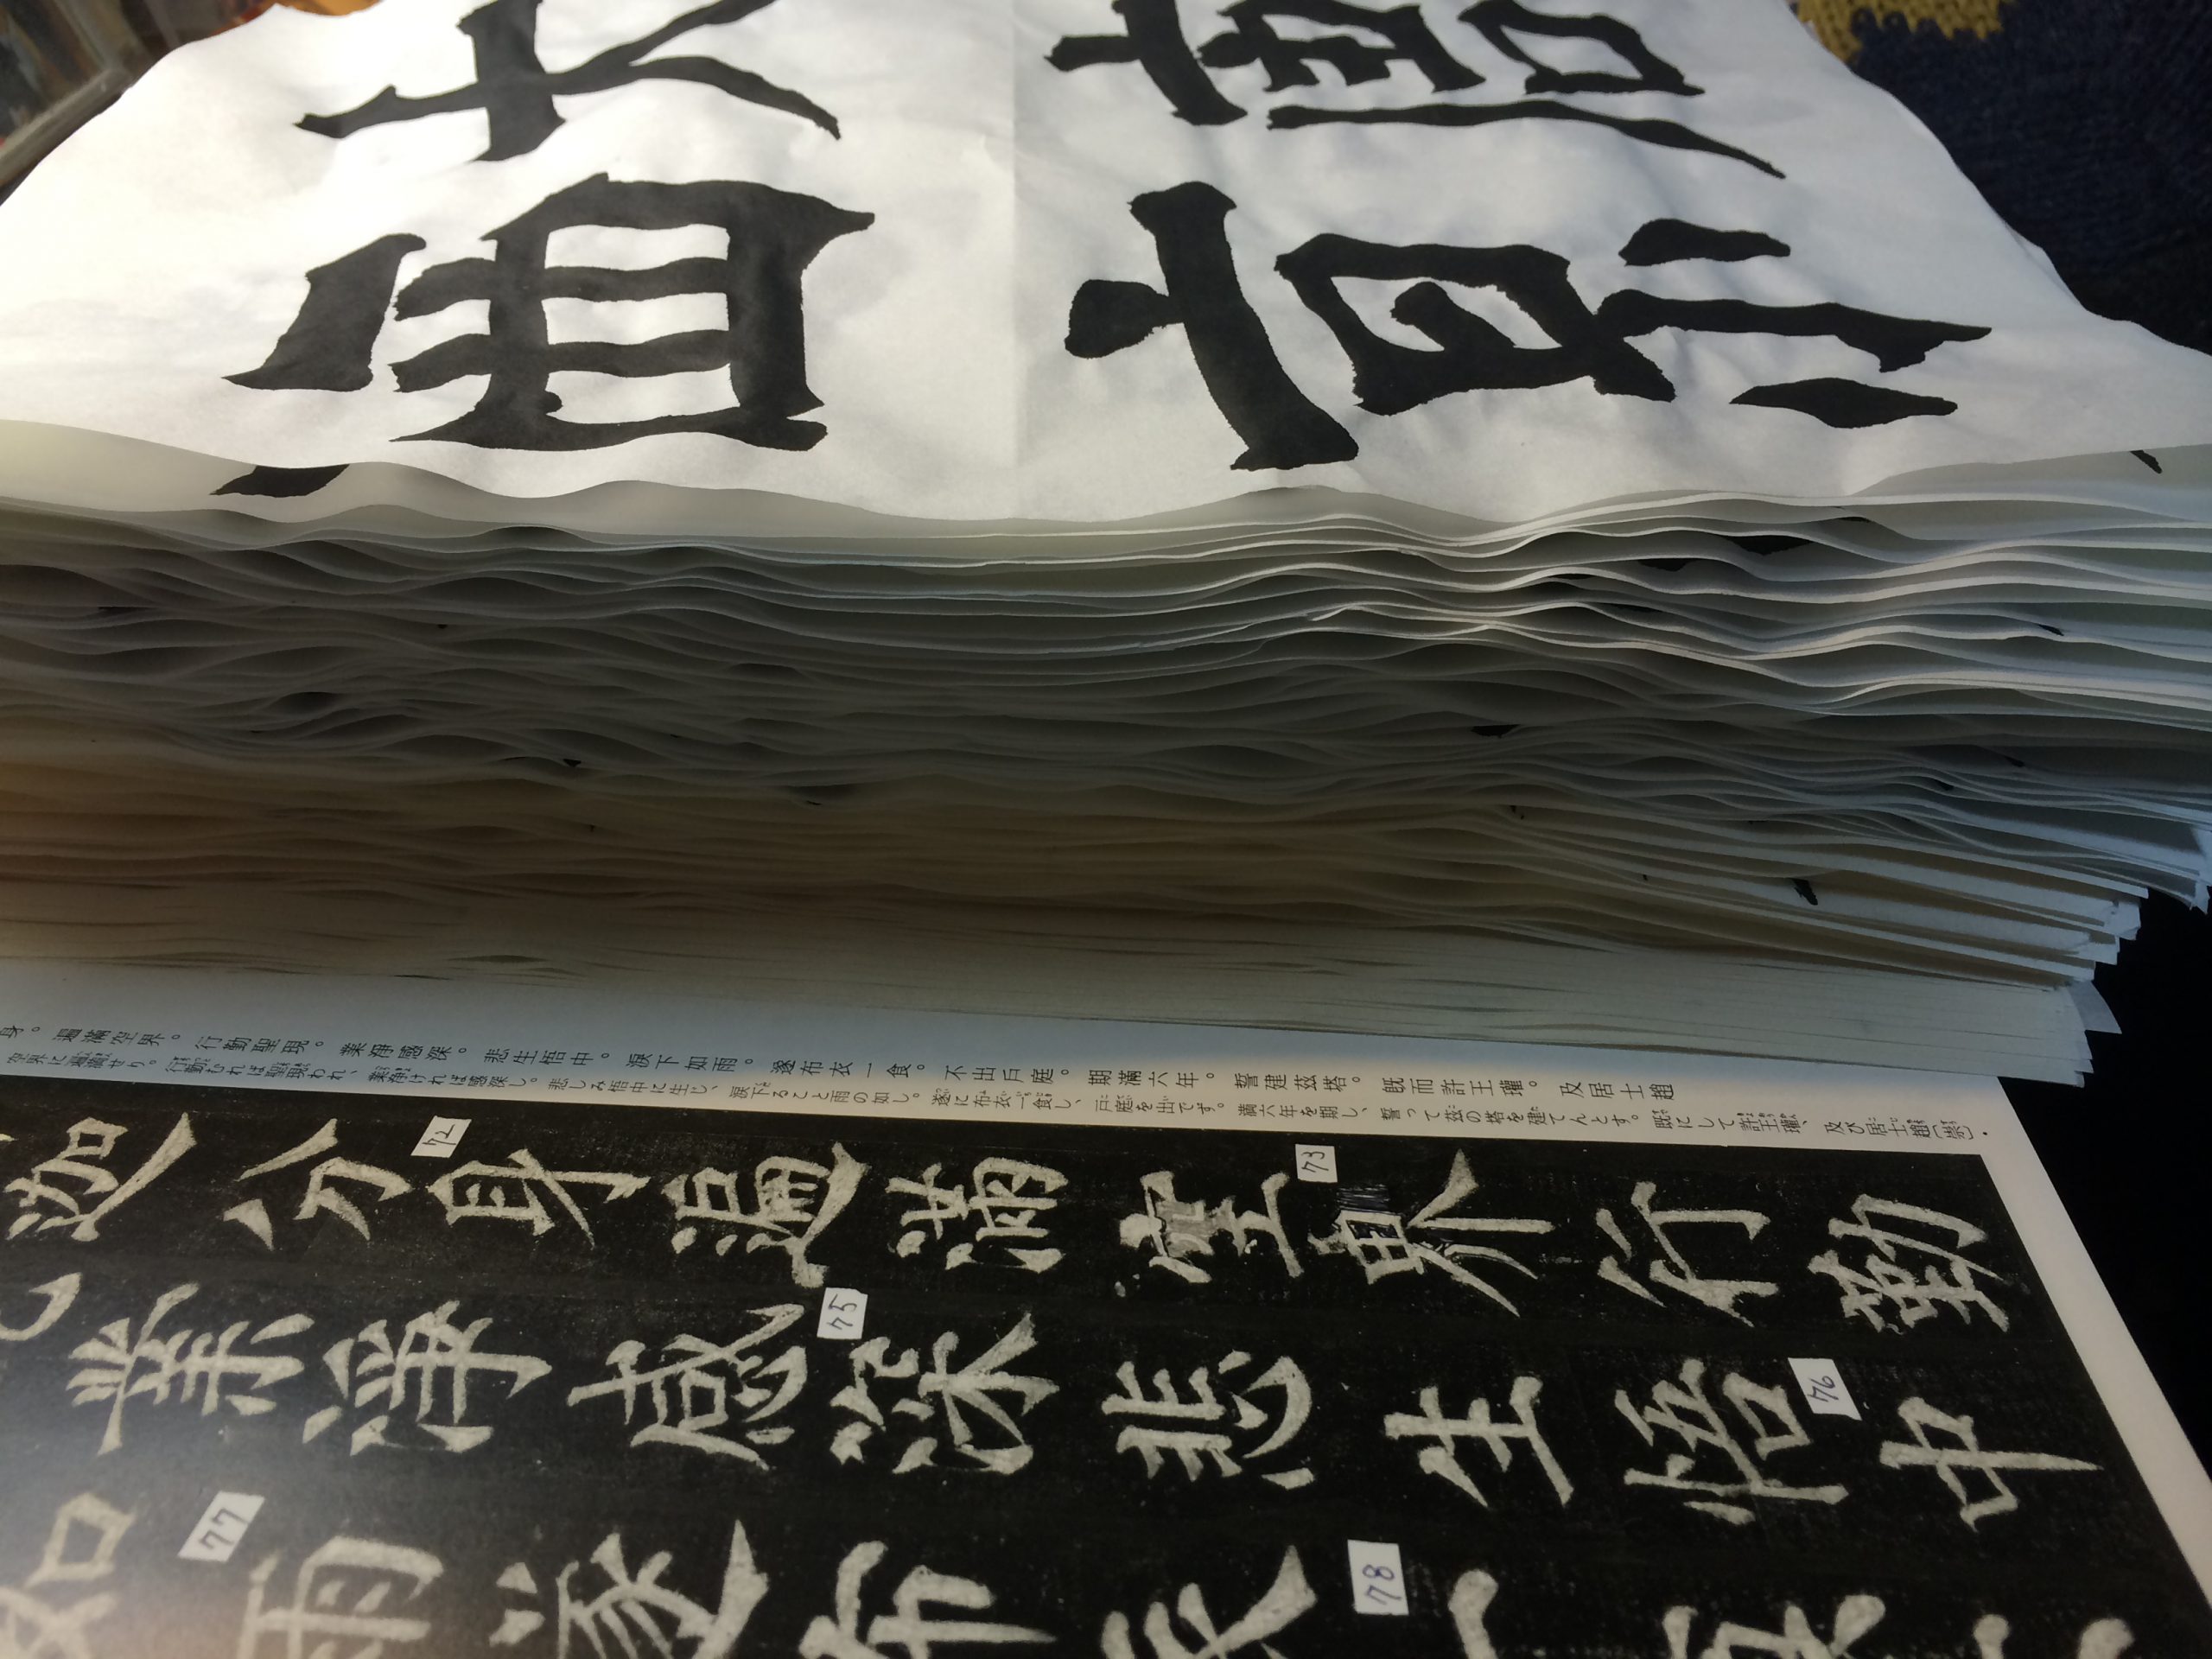 身。遍滿空界。行勤聖現。業淨感深。悲生悟中。涙下如雨。遂布衣一食。不出戸庭。期滿六年。誓建茲塔。既而許王瓘。及居士趙
空界に遍滿せり。行勤むれば聖現われ、業淨ければ感深し。悲しみ悟中に生じ、涙下ること雨の如し。遂に布衣一食し、戸庭を出でず。満六年を期し、誓って茲の塔を建てんとす。既にして許王瓘、及び居士趙〔崇〕・
72
73
迦分身遍滿空界行勤
75
76
業淨感深悲生悟中
77
78
如雨遂布衣一食不